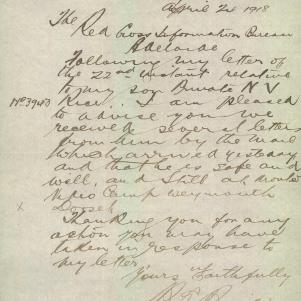 April 24 1918
The
Red Cross Information Bureau
Adelaide
Following my letter of
the 22nd instant relative
to my son Private N V
No 3943 Rice. I am pleased
to advise you we
received several letters
from him by the mail
which arrived yesterday
and that he is safe and
well, and still at Monte
Video Camp Weymouth
x Dorset
Thanking you for any
action you may have
taken in response to
my letter
Yours faithfully